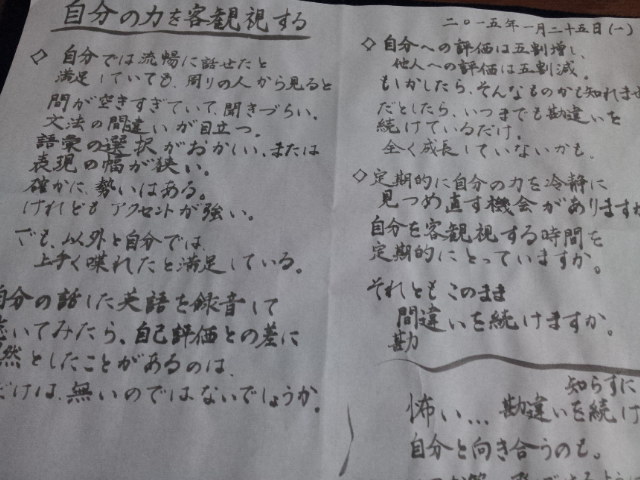 自分の力を客観視する
◇ 自分では流暢に話せたと
満足していても、周りの人から見ると
間が空きすぎていて、聞きづらい。
文法の間違いが目立つ。
語彙の選択がおかしい、または
表現の幅が狭い。
確かに、勢いはある。
けれどもアクセントが強い。
でも、以外と自分では、
上手く喋れたと満足している。
自分の話した英語を録音して
聴いてみたら、自己評価との差に
然としたことがあるのは、
だけは、無いのではないでしょうか。
二〇一五年一月二十五日(一)
◇ 自分への評価は五割増し、
他人への評価は五割減。
もしかしたら、そんなものかも知れませ
だとしたら、いつまでも勘違いを
続けているだけ。
全く成長していないかも。
◇ 定期的に自分の力を冷静に
見つめ直す機会がありますか
自分を客観視する時間を
定期的にとっていますか。
それともこのまま
間違いを続けますか。
勘
知らずに
怖い…勘違いを続け
自分と向き合うのも。